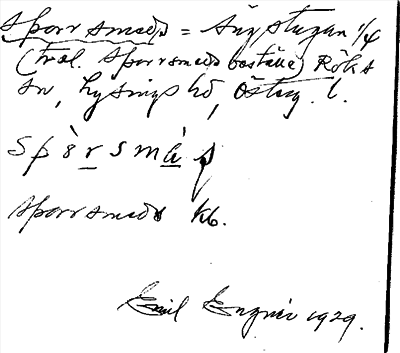 Sporrsmeds = Ängstugan 1/4
(Fral. Sporrsmedsboställe) Röks
sn, Lysings hd, Österg. l.
Spòrsmås
Sporrsmeds kb.
Emil 1929.